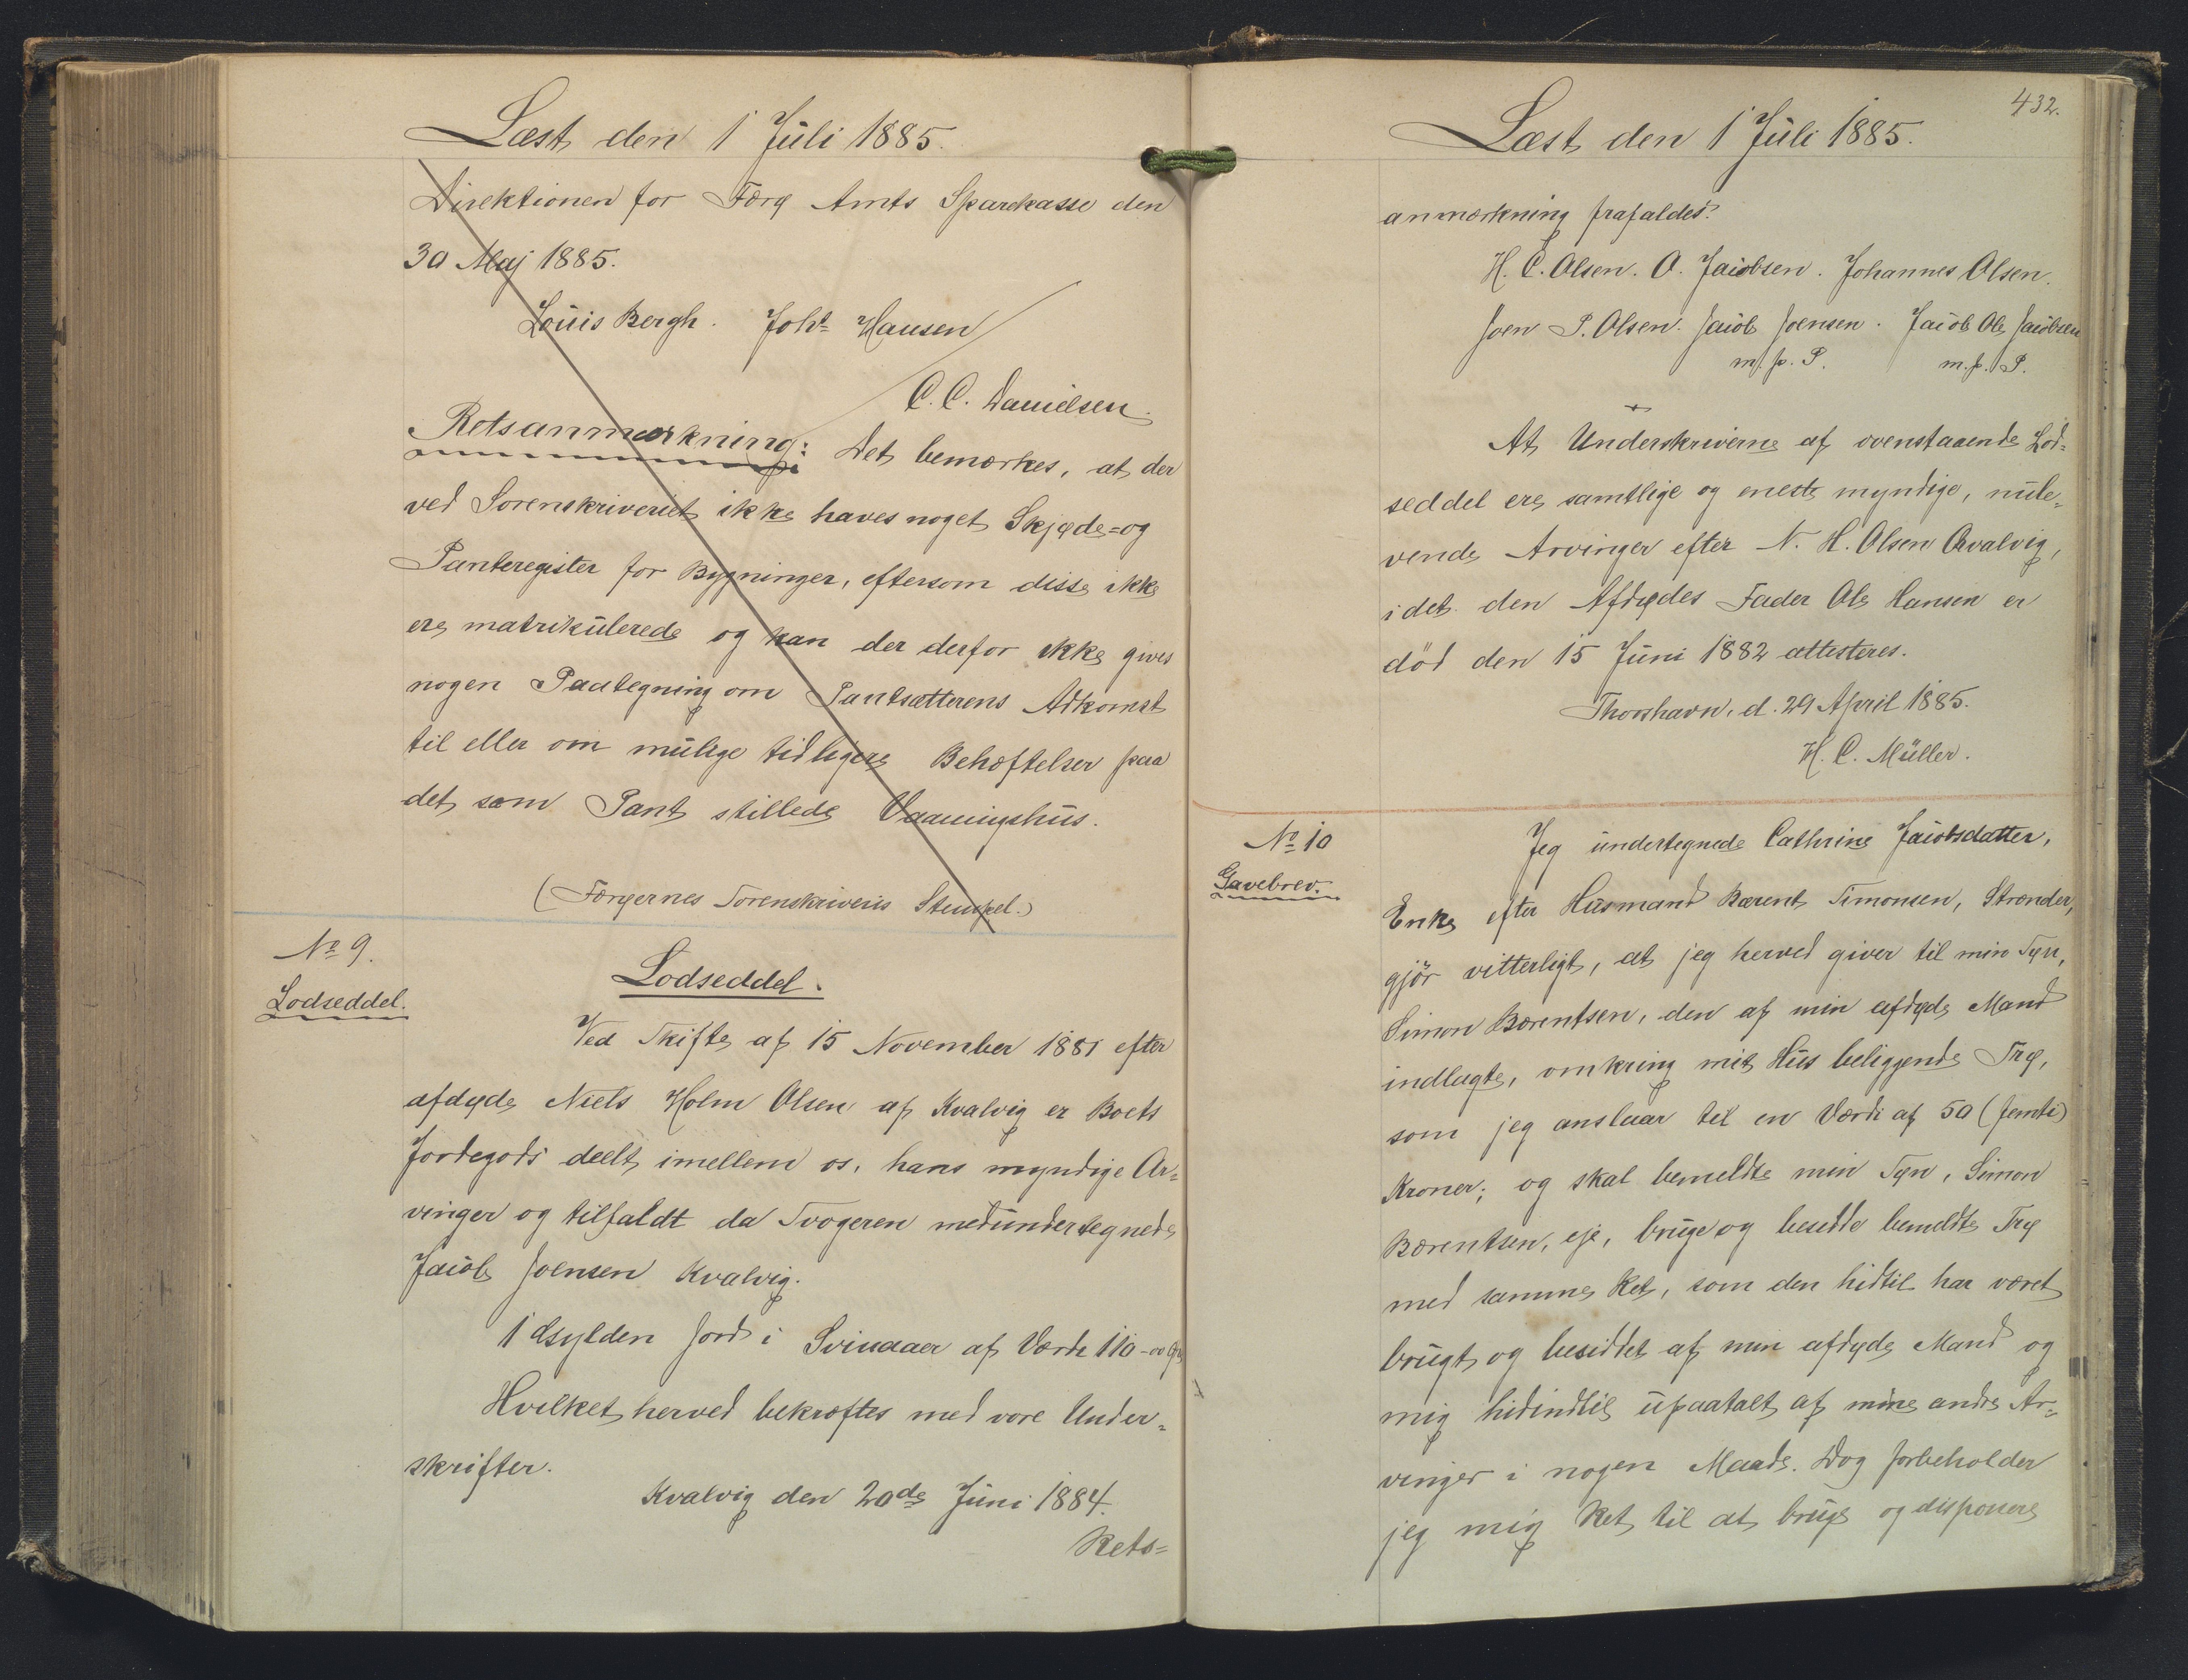 Læst den 1 Juli 1885.
Direktionen for Færø Amts Sparekasse den
30 Maj 1885.
Louis Bergh. Johs Hansen
C. C. Danielsen.
Retsanmærkning: Det bemærkes, at der
ved Sorenskriveriet ikke haves noget Skjøde= og
Panteregister for Bygninger, eftersom disse ikke
ere matrikulerede og kan der derfor ikke gives
nogen Paategning om Pantsætterens Adkomst
til eller om mulige tidligere Behæftelser paa
det som Pant stillede Vaaningshus.
(Færøernes Sorenskriveris Stempel.)
No 9.
Lodseddel.
Lodseddel.
Ved Skifte af 15 November 1881 efter
afdøde Niels Holm Olsen af Kvalvig er Boets
Jordegods deelt imellem os, hans myndige Ar=
vinger og tilfaldt da Svogeren medundertegnede
Jacob Joensen Kvalvig.
1 Gylden Jord i Svinaaer af Værdi 110-00 Øre
Hvilket herved bekræftes med vore Under=
skrifter.
Kvalvig den 20de Juni 1884.
Rets=
432.
Læst den 1 Juli 1885.
anmærkning frafaldes.
H. C. Olsen. O. Jacobsen. Johannes Olsen.
Joen P. Olsen. Jacob Joensen. Jacob Ole Jacobsen
m. f. P. m. f. P.
At Underskriverne af ovenstaaende Lod=
seddel ere samtlige og eneste myndige, nule=
vende Arvinger efter N. H. Olsen Qvalvig,
idet den Afdødes Fader Ole Hansen er
död den 15 Juni 1882 attesteres.
Thorshavn, d. 29 April 1885.
H. C. Müller.
No 10
Gavebrev.
Jeg undertegnede Cathrine Jacobsdatter,
Enke efter Husmand Bærent Simonsen, Strænder,
gjör vitterligt, at jeg herved giver til min Søn,
Simon Bærentsen, den af min afdøde Mand
indlagte, omkring mit Hus beliggende Trø,
som jeg anslaar til en Værdi af 50 (femti)
Kroner; og skal bemeldte min Søn, Simon
Bærentsen, eje, bruge og besidde bemeldte Trø
med samme Ret, som den hidtil har været
brugt og besiddet af min afdøde Mand og
mig hidindtil upaatalt af mine andre Ar=
vinger i nogen Maade. Dog forbeholder
jeg mig Ret til at bruge og disponere